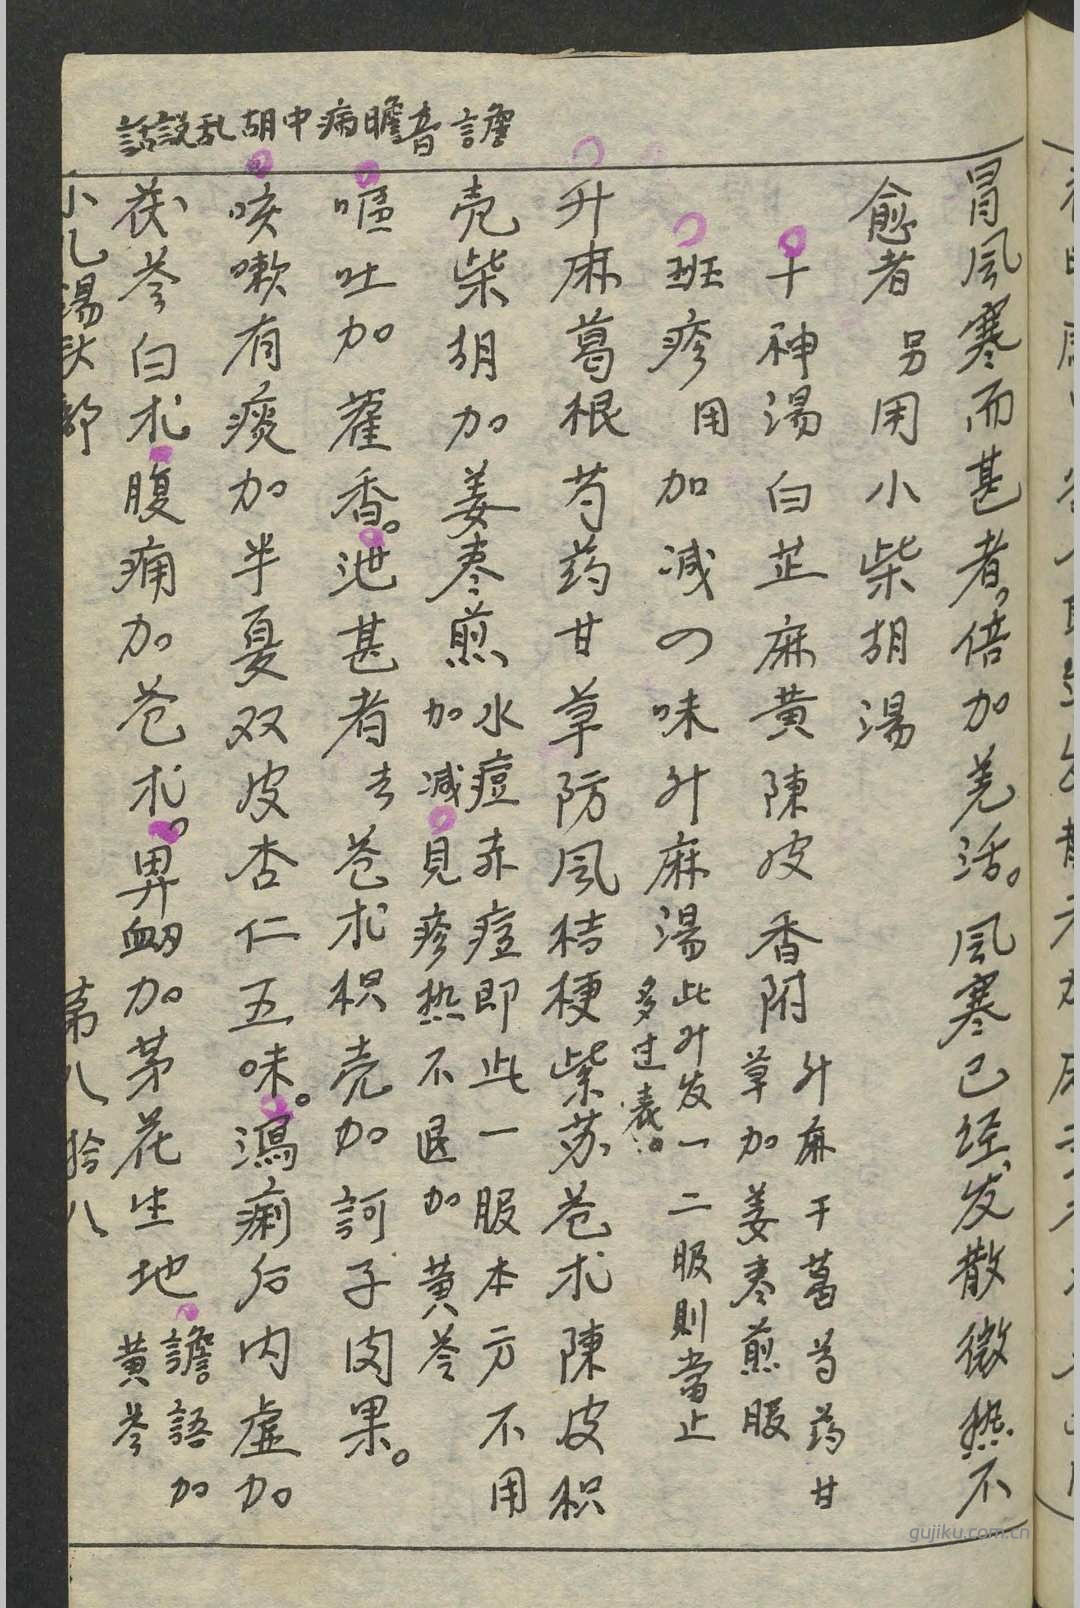 譫音瞻病中胡乱說話
冒風寒而甚者，倍加羌活。風寒已经发散微热不
愈者另用小柴胡湯
十神湯白芷麻黄陳皮香附升麻干葛芍药甘
草加姜枣煎服
班疹用加减四味升麻湯此升发一二服則當止
多过表。
升麻葛根芍药甘草防風桔梗紫苏苍术陳皮枳
壳柴胡加姜枣煎水痘赤痘即此一服本方不用
加减見疹热不退加黄芩
嘔吐加藿香。泄甚者去苍术枳壳加訶子肉果。
咳嗽有痰加半夏双皮杏仁五味。瀉痢后内虚加
茯苓白术腹痛加苍术。鼻衂加茅花生地譫語加
黄芩
小儿湯头部 第八拾八
gujiku.com.cn